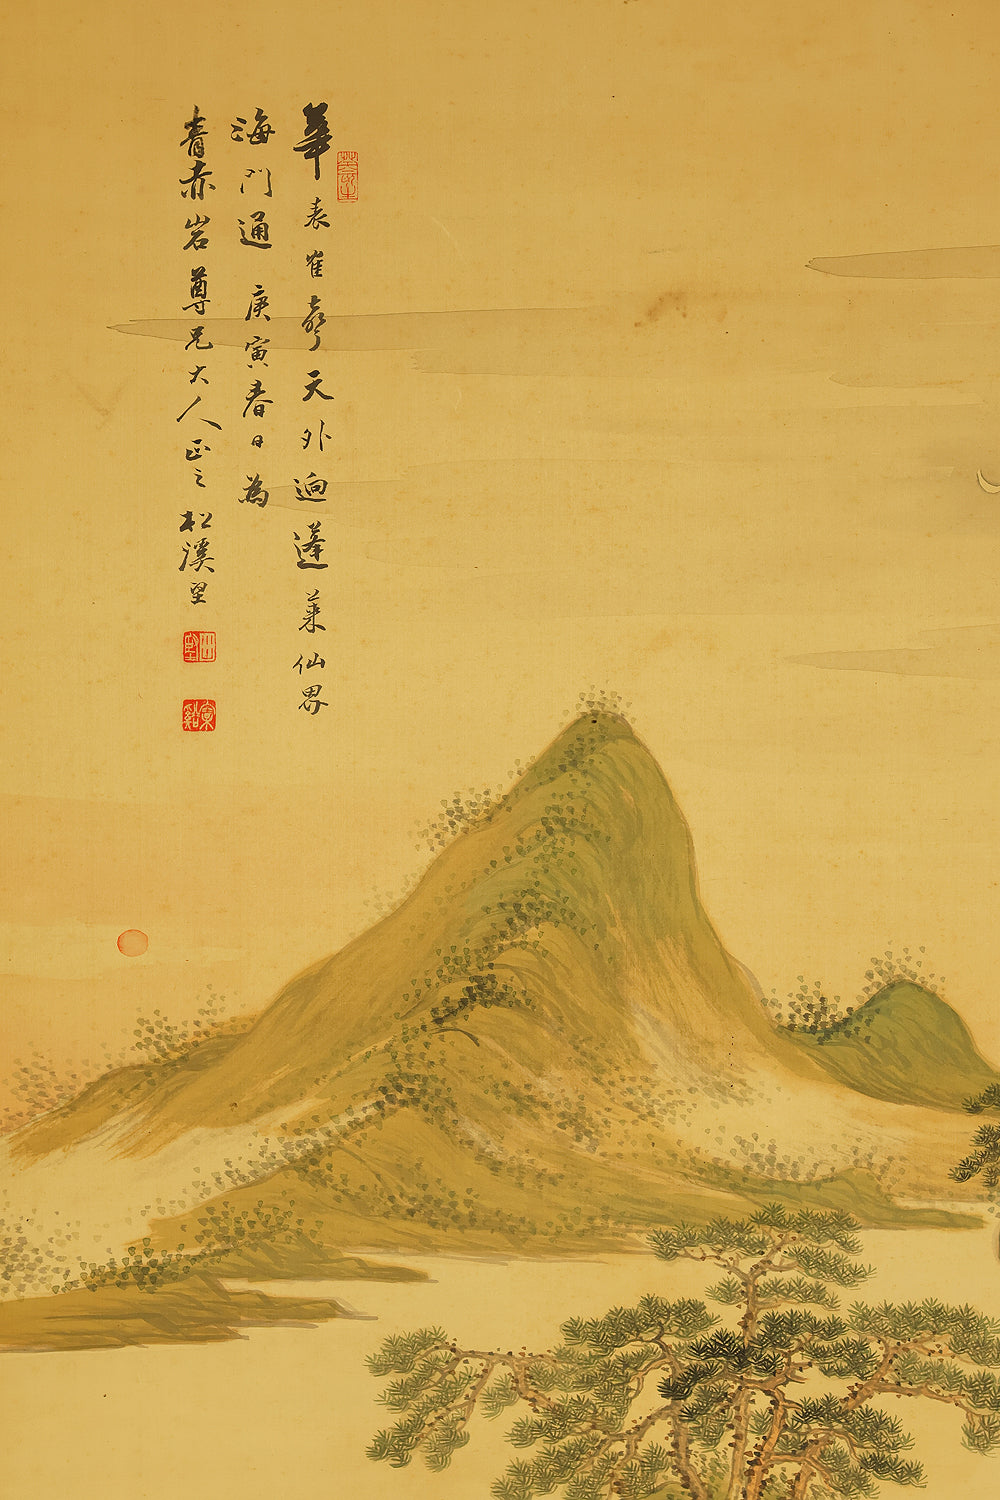 華表崔聲天外迥蓬萊仙界
海門通 庚寅春日為
青赤岩尊兄大人正之 松溪望